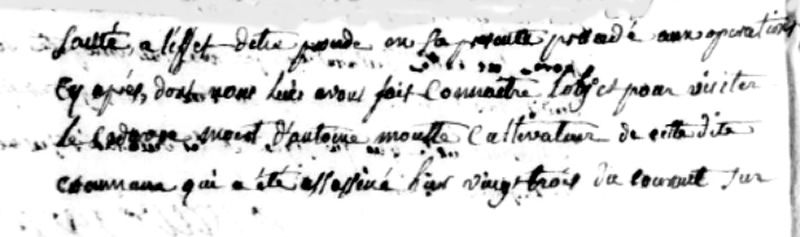 santé, a l'effet d'etre procédé en sa presence procédé aux operations
Cy après, dont nous lui avons fait Connaitre l'objet pour visiter
le Cadavre mort d'antoine moutte Cultivateur de cette dite
Commune qui a été assassiné hier vingt trois du courant sur